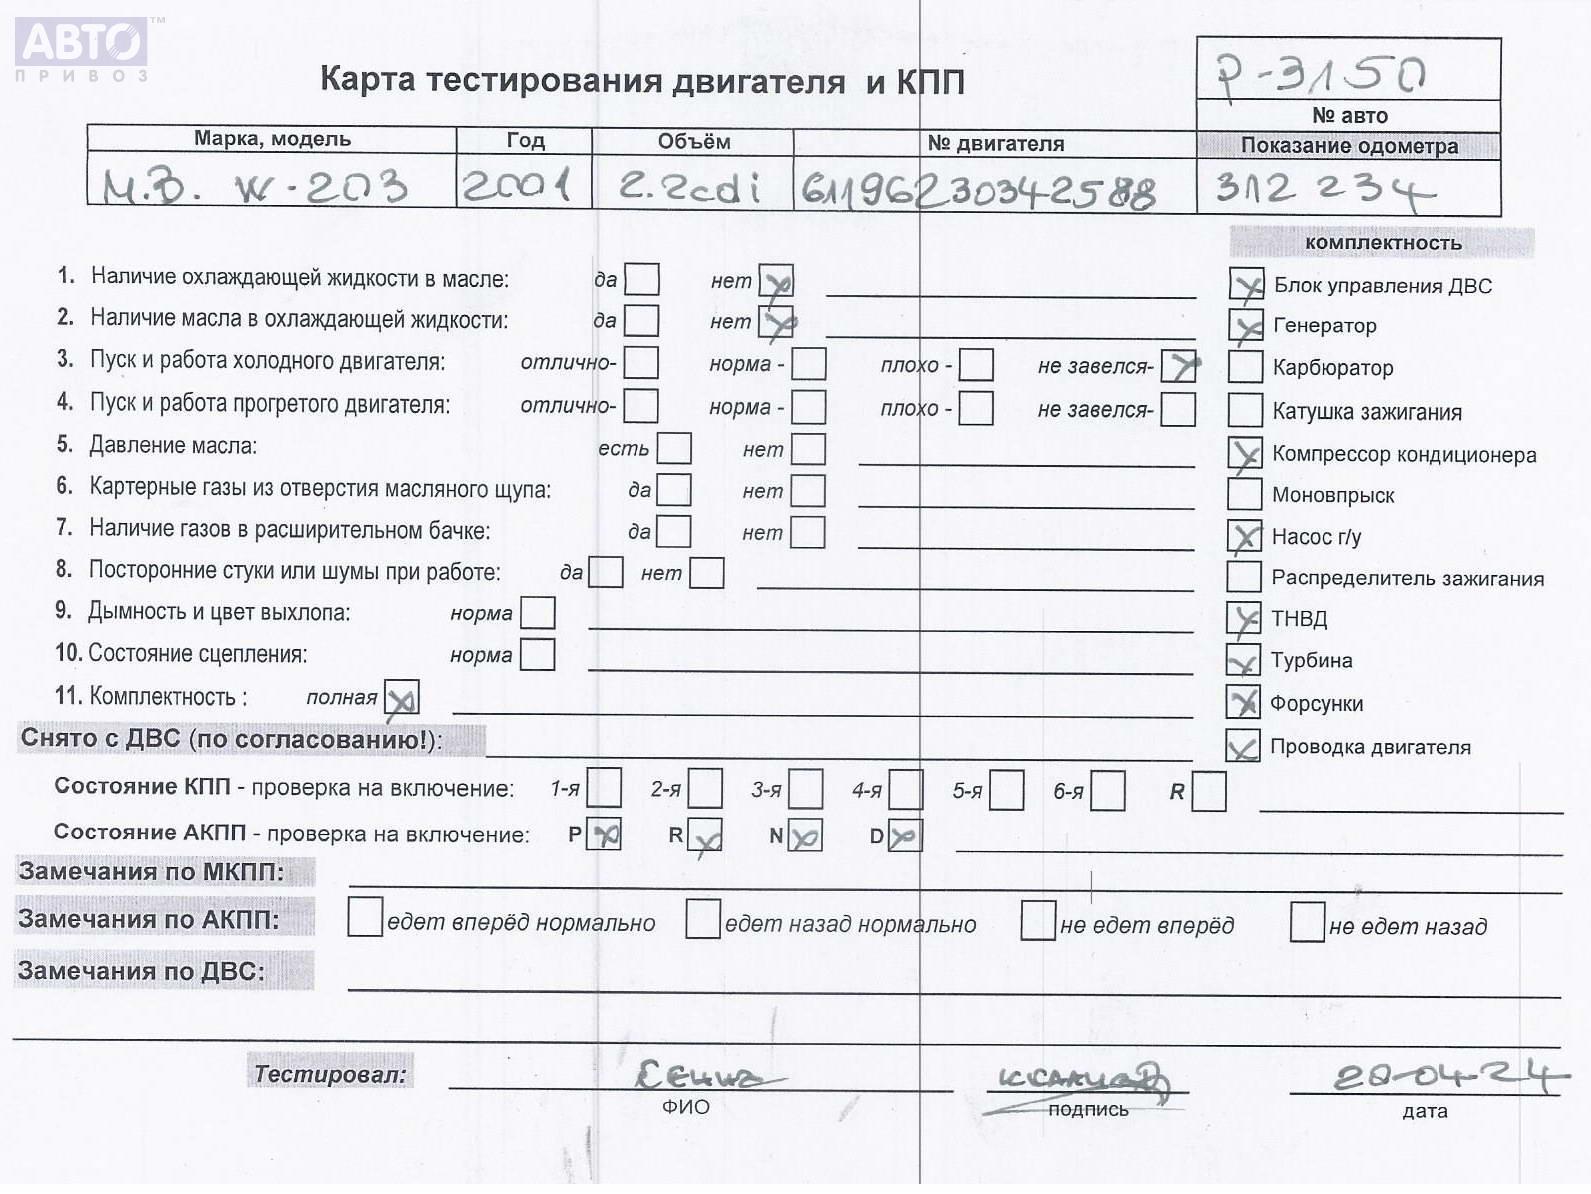 АВТО™
ПРИВОЗ
Карта тестирования двигателя и КПП
P-3150
№ авто
Марка, модель Год Объём № двигателя Показание одометра
M.B. W-203 2001 2.2cdi 61196230342588 312 234
комплектность
1. Наличие охлаждающей жидкости в масле: да нет
Блок управления ДВС
2. Наличие масла в охлаждающей жидкости: да нет
Генератор
3. Пуск и работа холодного двигателя: отлично- норма - плохо - не завелся-
Карбюратор
4. Пуск и работа прогретого двигателя: отлично- норма - плохо - не завелся-
Катушка зажигания
5. Давление масла: есть нет
Компрессор кондиционера
6. Картерные газы из отверстия масляного щупа: да нет
Моновпрыск
7. Наличие газов в расширительном бачке: да нет
Насос г/у
8. Посторонние стуки или шумы при работе: да нет
Распределитель зажигания
9. Дымность и цвет выхлопа: норма
ТНВД
10. Состояние сцепления: норма
Турбина
11. Комплектность : полная
Форсунки
Снято с ДВС (по согласованию!):
Проводка двигателя
Состояние КПП - проверка на включение: 1-я 2-я 3-я 4-я 5-я 6-я R
Состояние АКПП - проверка на включение: P R N D
Замечания по МКПП:
Замечания по АКПП: едет вперёд нормально едет назад нормально не едет вперёд не едет назад
Замечания по ДВС:
Тестировал:
ФИО подпись дата